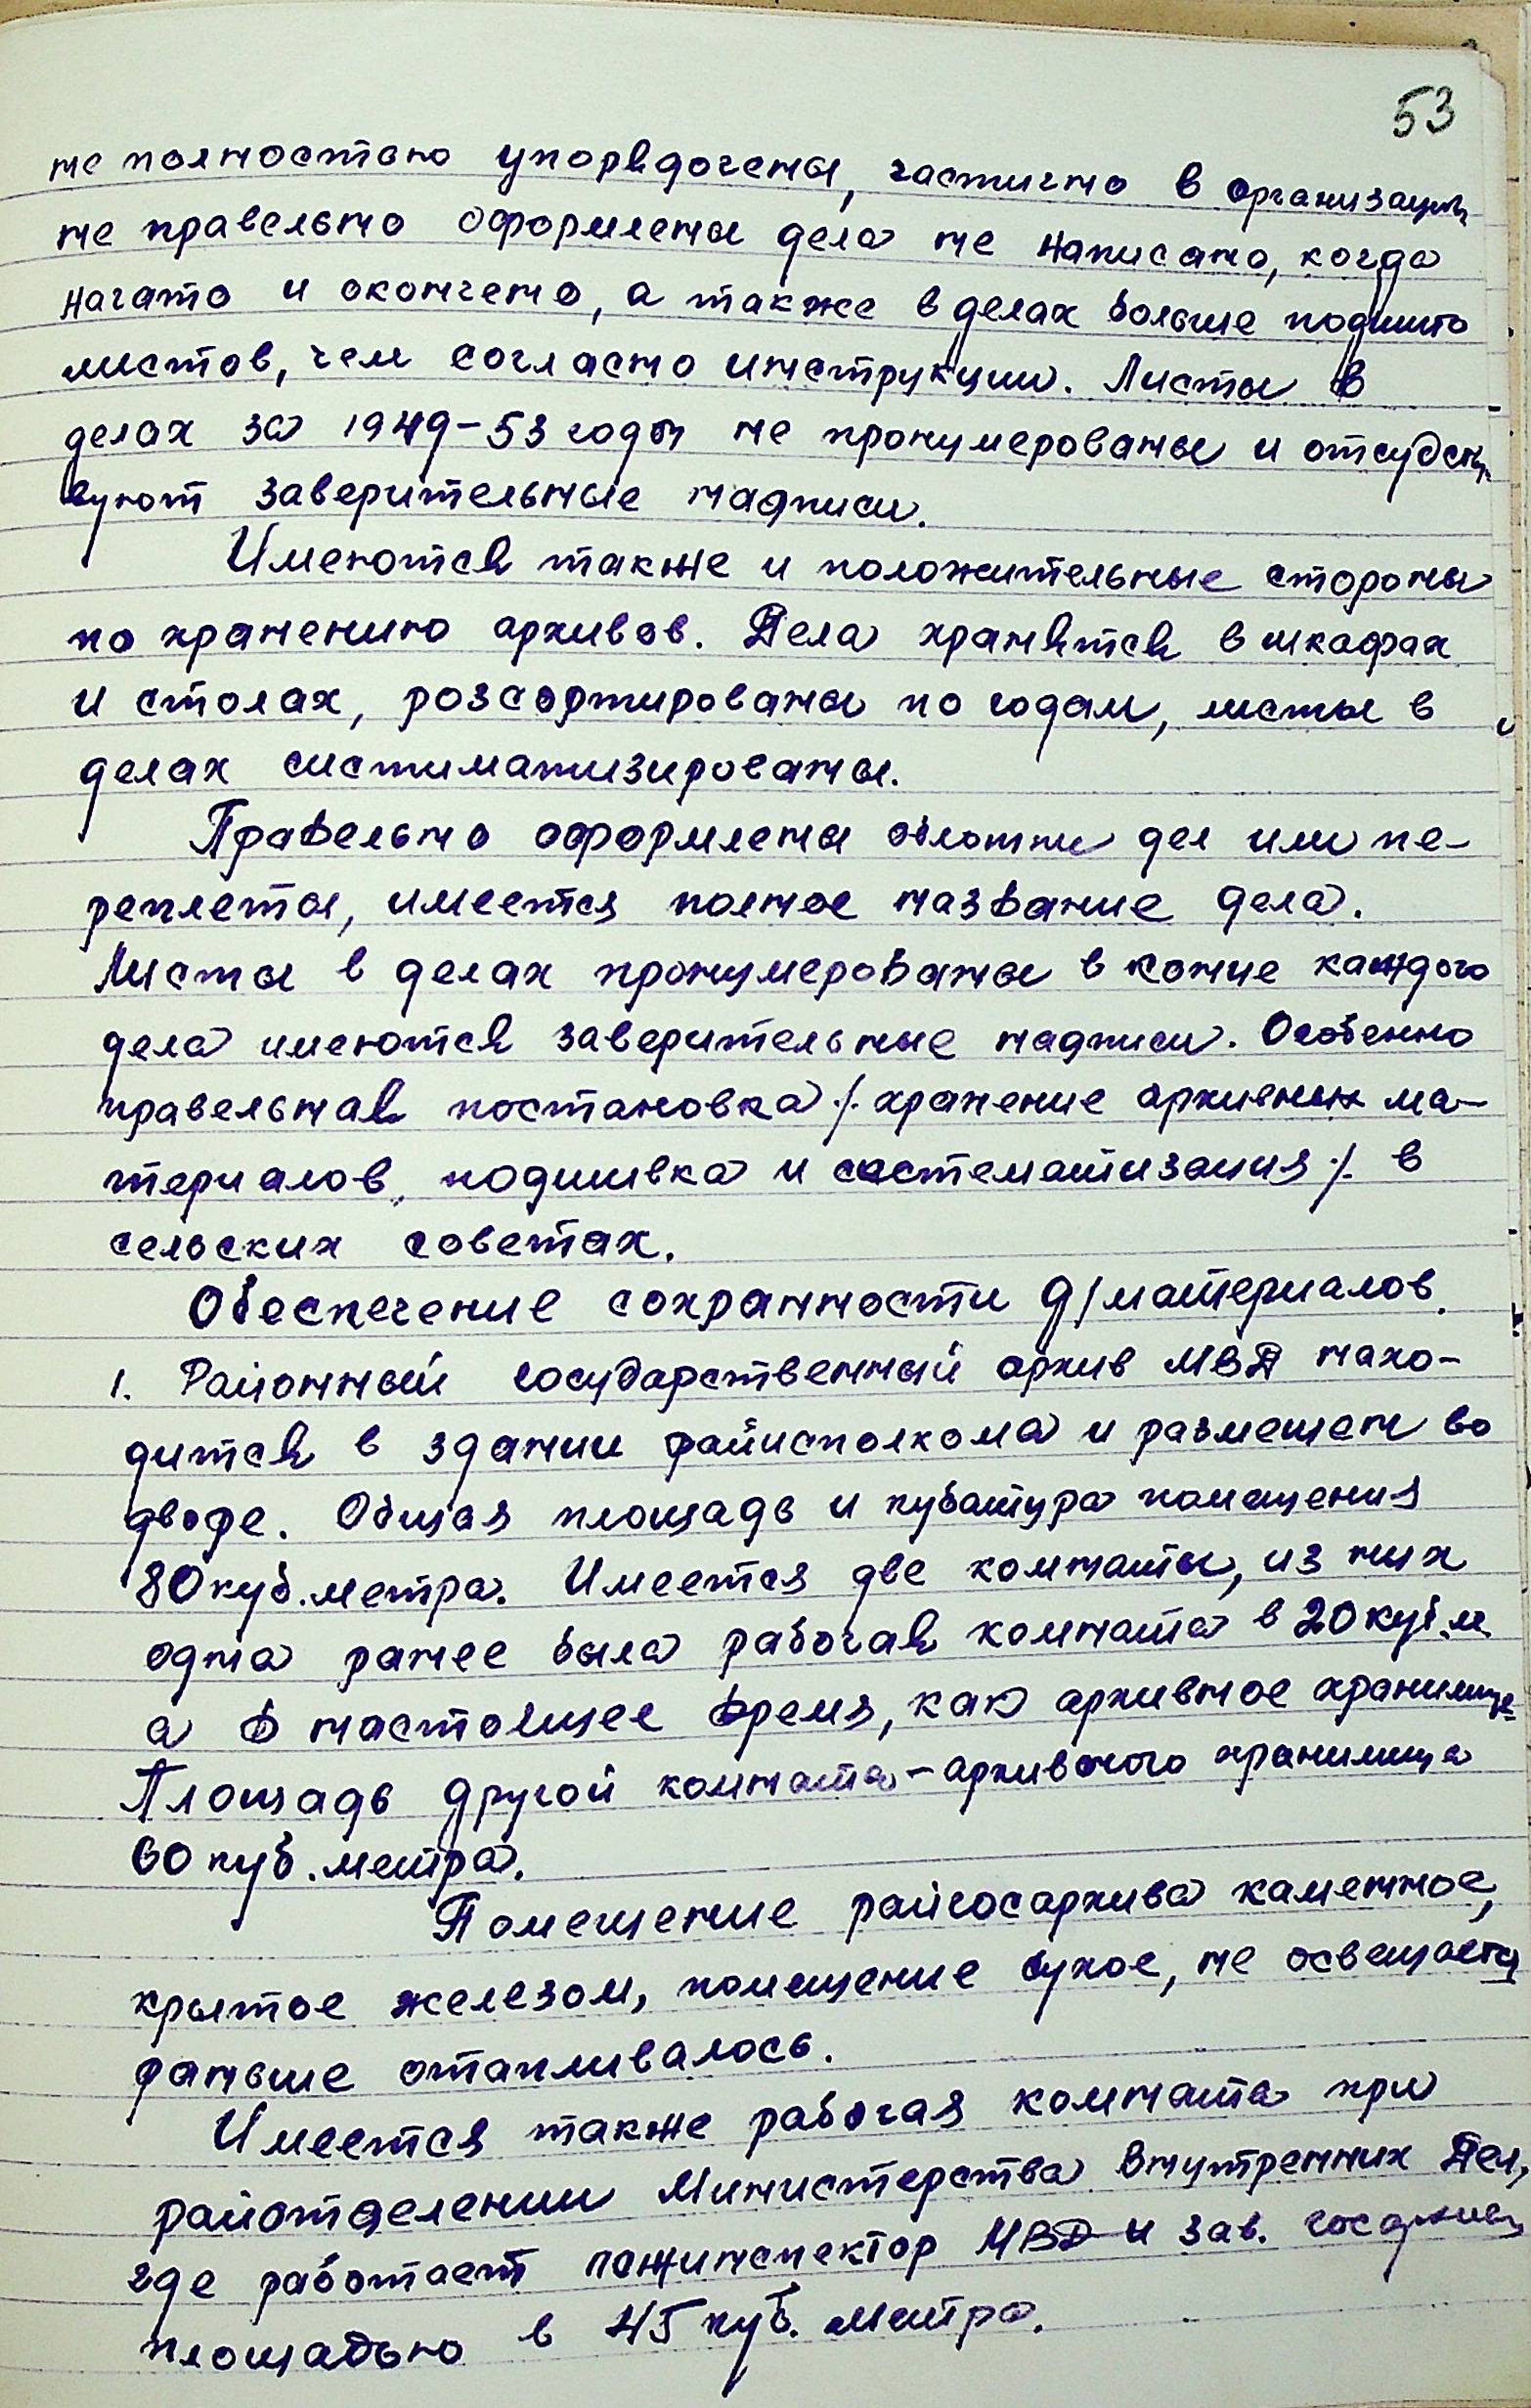 53
не полностью упорядочены, частично в организации
не правельно оформлены дела не написано, когда
начато и окончено, а также в делах больше подшито
листов, чем согласно инструкции. Листы в
делах за 1949-53 годы не пронумерованы и отсудст-
вуют заверительные надписи.
Имеются также и положительные стороны
по хранению архивов. Дела хранятся в шкафах
и столах, розсортированы по годам, листы в
делах систиматизированы.
Правельно оформлены обложки дел или пе-
реплеты, имеется полное название дела.
Листы в делах пронумерованы в конце каждого
дела имеются заверительные надписи. Особенно
правельная постановка /. хранение архивных ма-
териалов, подшивка и систематизация ./. в
сельских советах.
Обеспечение сохранности д/материалов.
1. Районный государственный архив МВД нахо-
дится в здании райисполкома и размещен во
дворе. Общая площадь и кубатура помещения
80 куб. метра. Имеется две комнаты, из них
одна ранее была рабочая комната в 20 куб. м.
а в настоящее время, как архивное хранилище
Площадь другой комната - архивного хранилища
60 куб. метра.
Помещение райгосархива каменное,
крытое железом, помещение сухое, не освещается
раньше отапливалось.
Имеется также рабочая комната при
райотделении Министерства Внутренних Дел,
где работает пожинспектор МВД и зав. госархив
площадью в 45 куб. метра.